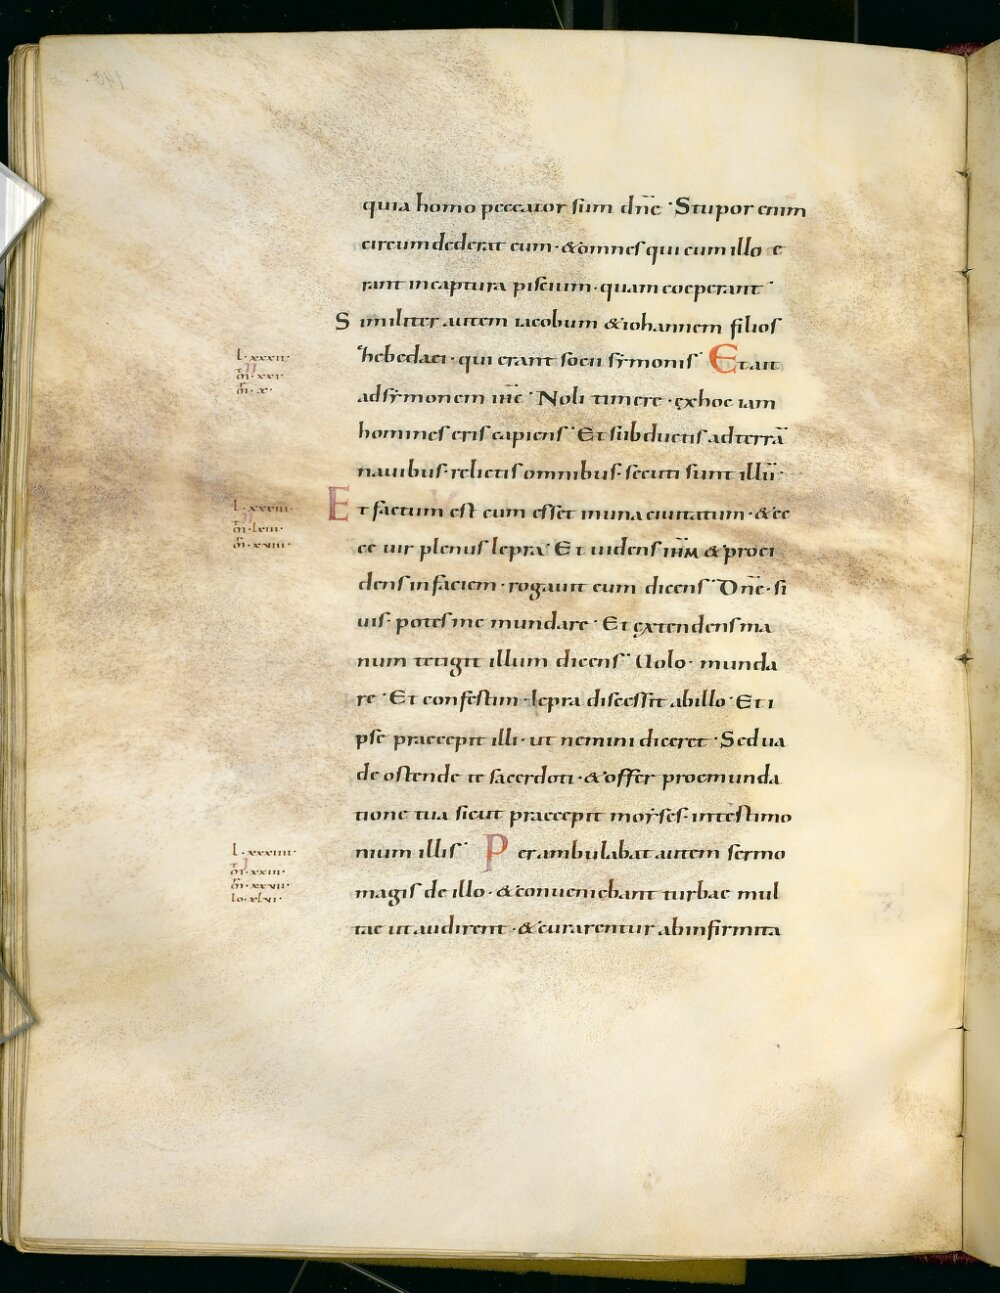 quia homo peccator sum dn̄e · Stupor enim
circumdederat eum · & omnes qui cum illo e
rant in captura piscium · quam coeperant ·
Similiter autem iacobum & iohannem filios
l · xxxii ·
zebedaei · qui erant socii sẏmonis · Et ait
m̄ · xxi ·
m̄ · x ·
ad sẏmonem ih̄c · Noli timere · ęx hoc iam
homines eris capiens · Et subductis ad terrā
nauibus · relictis omnibus · secuti sunt illū ·
l · xxxiii ·
Et factum est cum esset in una ciuitatum · & ec
m̄ · lxiii ·
m̄ · xviii ·
ce uir plenus lepra · Et uidens ih̄m & proci
dens in faciem · rogauit eum dicens · Dn̄e · si
uis · potes me mundare · Et ęxtendens ma
num tetigit illum dicens · Uolo · munda
re · Et confestim · lepra discessit ab illo · Et i
pse praecepit illi · ut nemini diceret · Sed ua
de ostende te sacerdoti · & offer pro emunda
tione tua sicut praecepit moẏses · in testimo
l · xxxiiii ·
nium illis · Perambulabat autem sermo
m̄ · xxiii ·
m̄ · xxvii ·
magis de illo · & conueniebant turbae mul
lo · xlvi ·
tae ut audirent · & curarentur ab infirmita